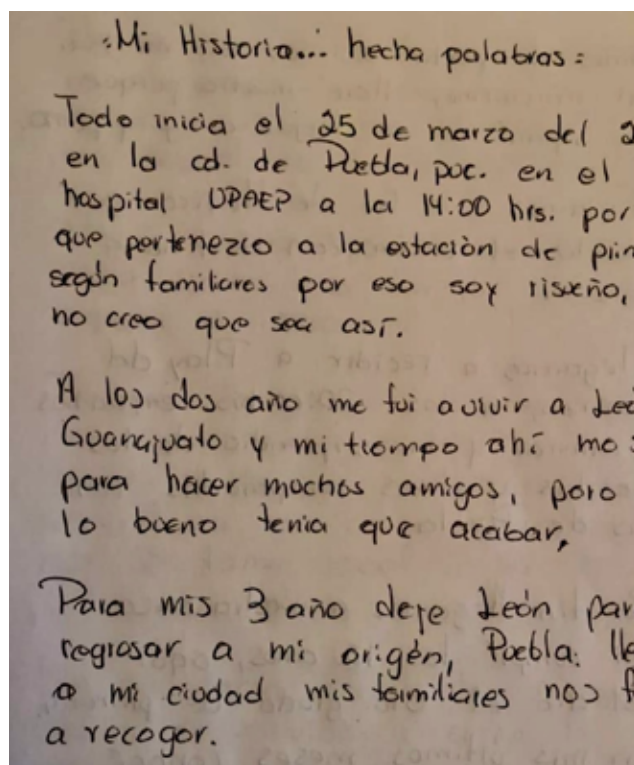 :Mi Historia... hecha palabras:
Todo inicia el 25 de marzo del 2
en la cd. de Puebla, puc. en el
hospital UPAEP a la 14:00 hrs. por
que pertenezco a la estación de prim
según familiares por eso soy risueño,
no creo que sea así.
A los dos año me fui a vivir a Leó
Guanajuato y mi tiempo ahí me s
para hacer muchos amigos, pero
lo bueno tenia que acabar,
Para mis 3 año deje León par
regresar a mi origén, Puebla. lle
a mi ciudad mis familiares nos f
a recoger.